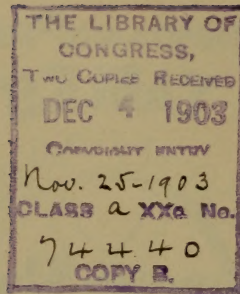 THE LIBRARY OF
CONGRESS,
TWO COPIES RECEIVED
DEC 4 1903
COPYRIGHT ENTRY
Nov. 25-1903
CLASS a XXc. No.
74440
COPY B.